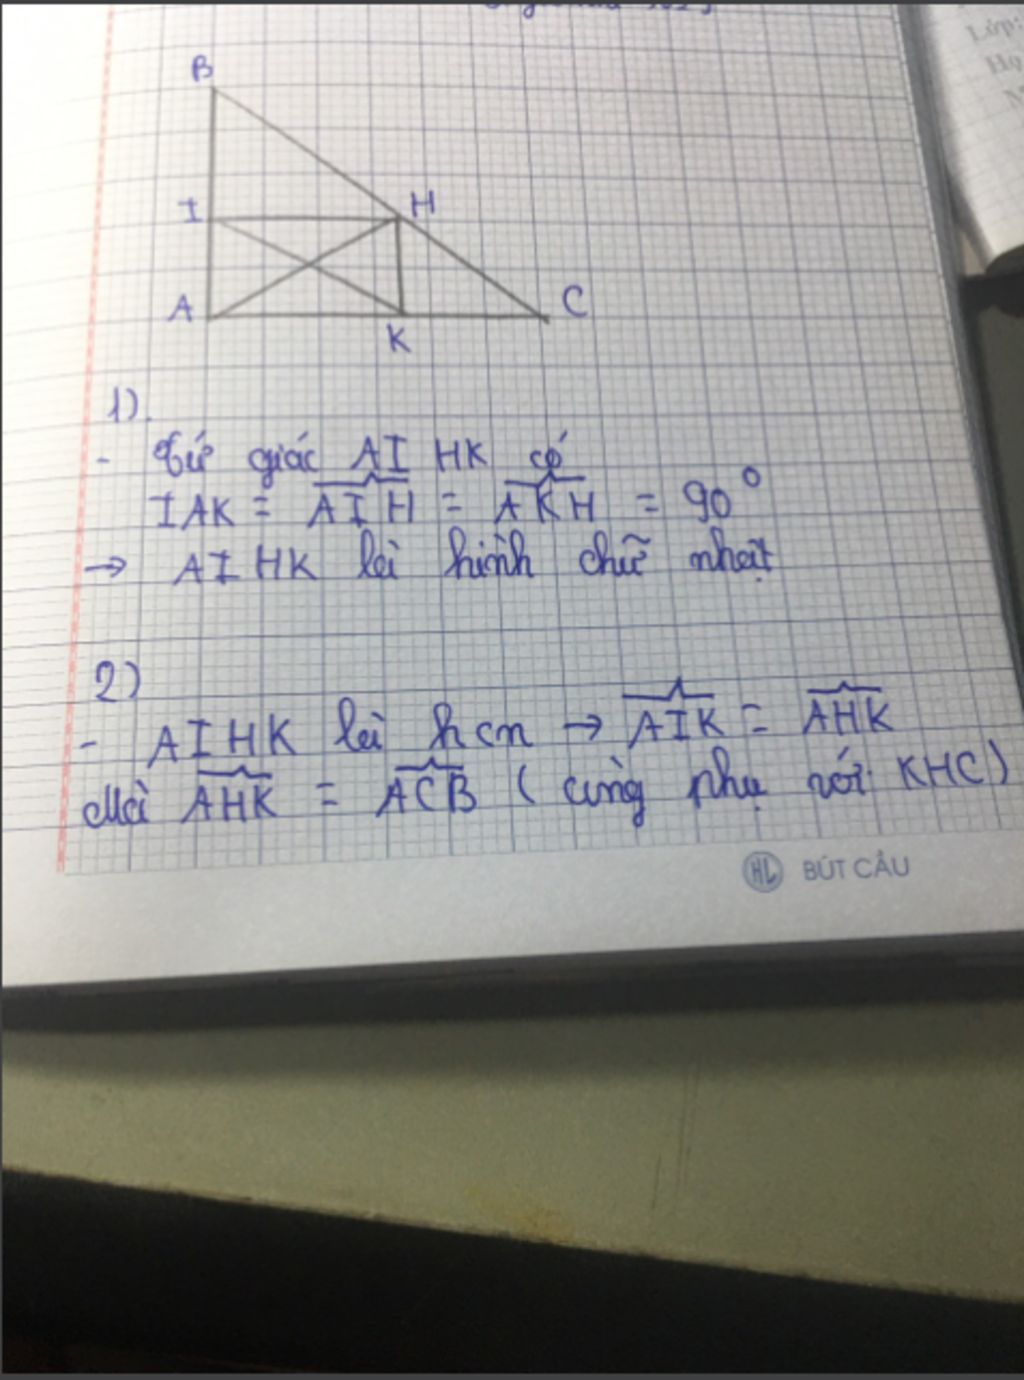 B
I
H
A
K
C
1).
- Tứ giác AIHK có
IAK = AIH = AKH = 90°
→ AIHK là hình chữ nhật
2)
- AIHK là hcn → AIK = AHK
Mà AHK = ACB ( cùng phụ với KHC)
HL BÚT CẦU
Lớp:
Họ